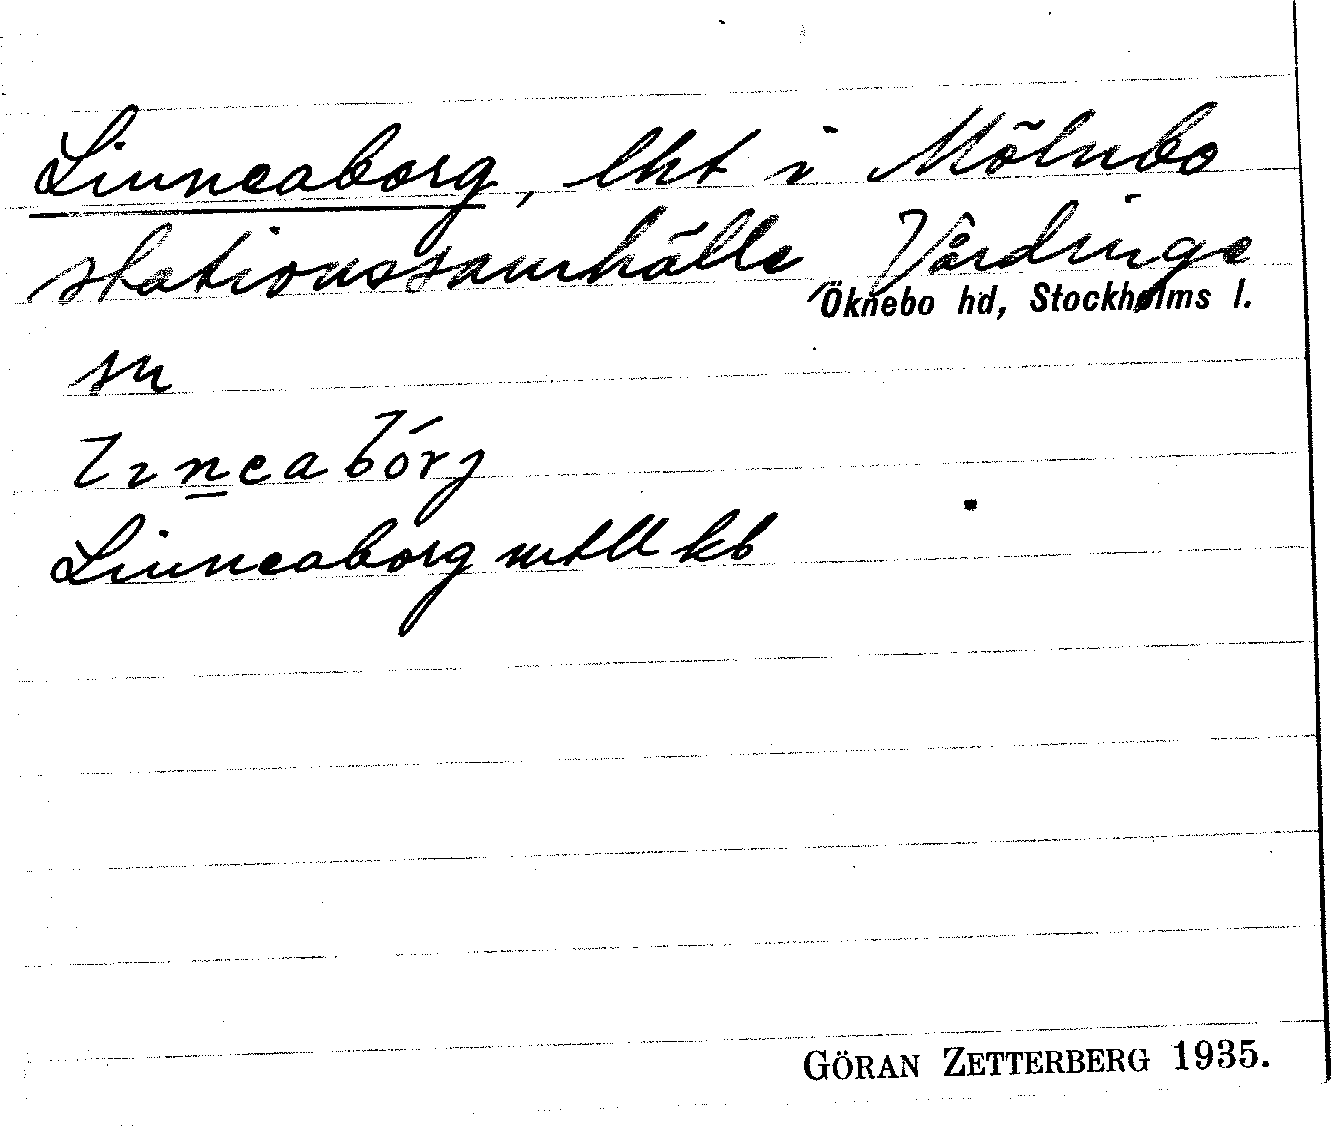 Linneaborg, lht i Mölnbo
stationssamhälle, Vårdinge
Öknebo hd, Stockholms l.
sn
lineabórj
Linneaborg mtll kb
GÖRAN ZETTERBERG 1935.